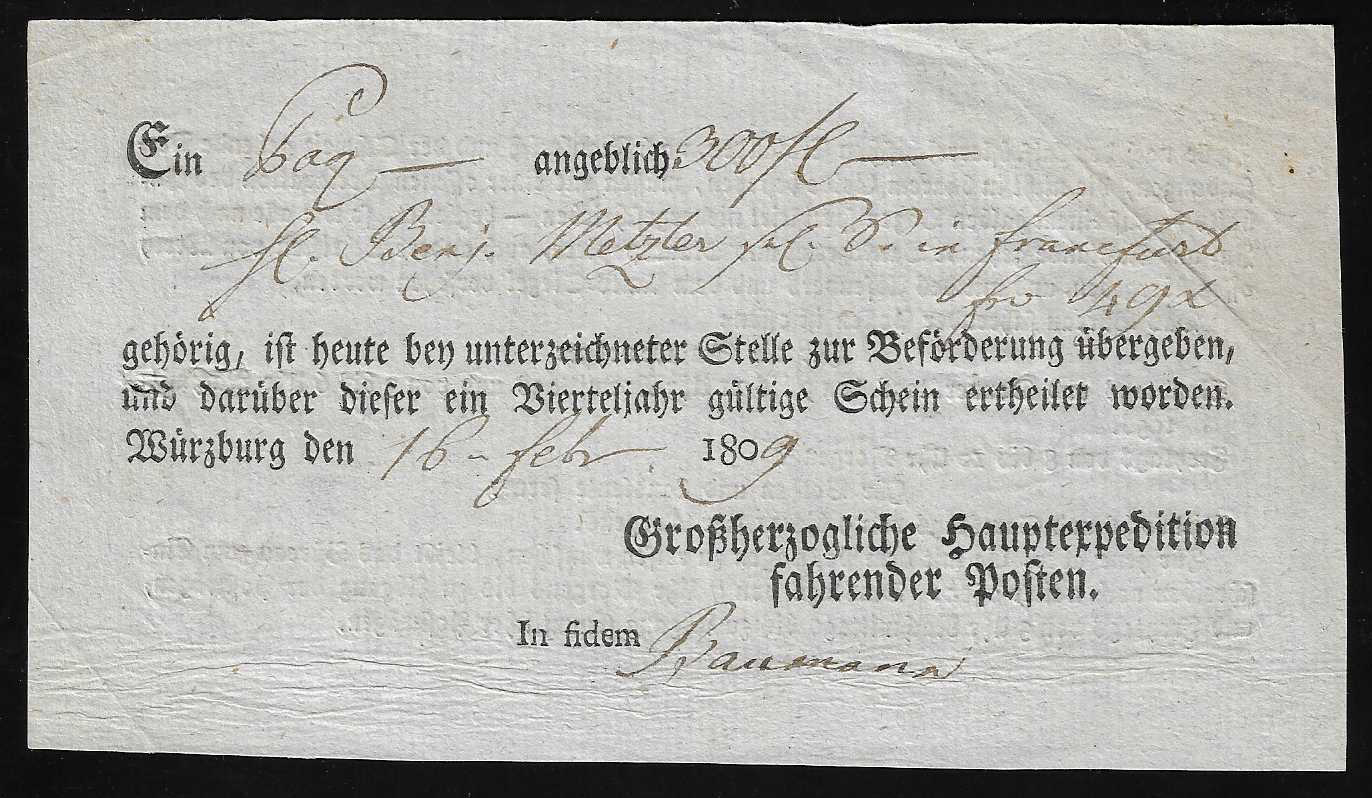 Ein Paq angeblich 300 fl
H. Benj. Metzler sel. S. in Francfurt
fro 49x
gehörig, ist heute bey unterzeichneter Stelle zur Beförderung übergeben,
und darüber dieser ein Vierteljahr gültige Schein ertheilet worden.
Würzburg den 16 - febr 1809
Großherzogliche Hauptexpedition
fahrender Posten.
In fidem Baumann